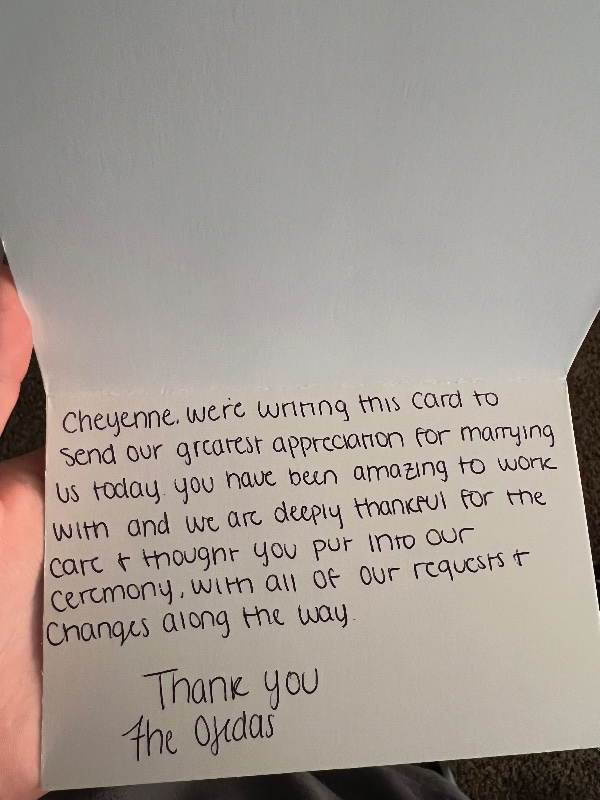 Cheyenne, we're writing this card to
send our greatest appreciation for marrying
us today. you have been amazing to work
with and we are deeply thankful for the
care + thought you put into our
ceremony, with all of our requests +
changes along the way.
Thank you
The Ojedas